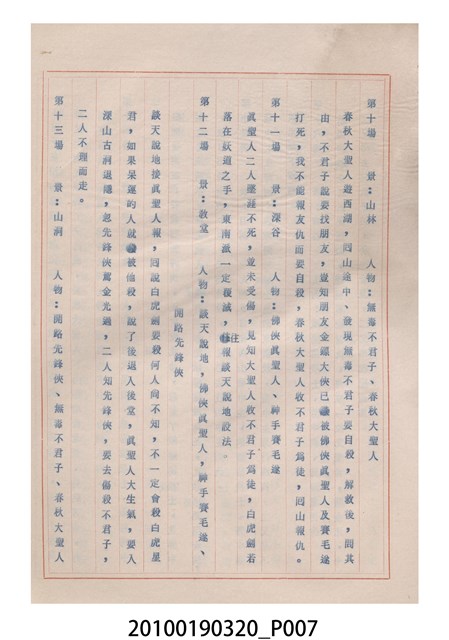 第十場　景：山林　人物：無毒不君子、春秋大聖人
春秋大聖人遊西湖，回山途中、發現無毒不君子要自殺，解救後，問其
由，不君子說要找朋友，豈知朋友金鏢大俠已被佛俠眞聖人及賽毛遂
打死，我不能報友仇而要自殺，春秋大聖人收不君子爲徒，回山報仇。
第十一場　景：深谷　人物：佛俠眞聖人、神手賽毛遂
眞聖人二人墜涯不死，並未受傷，見知大聖人收不君子爲徒，白虎劍若
落在妖道之手，東南派一定覆滅，往報談天說地設法。
第十二場　景：敎堂　人物：談天說地，佛俠眞聖人，神手賽毛遂、
開路先鋒俠
談天說地接眞聖人報，回說白虎劍要殺何人尚不知，不一定會殺白虎星
君，如果呆運的人就被他殺，說了後退入後堂，眞聖人大生氣，要入
深山古洞退隱，忽先鋒俠駕金光過，二人知先鋒俠，要去傷殺不君子，
二人不理而走。
第十三場　景：山洞　人物：開路先鋒俠、無毒不君子、春秋大聖人
20100190320_P007